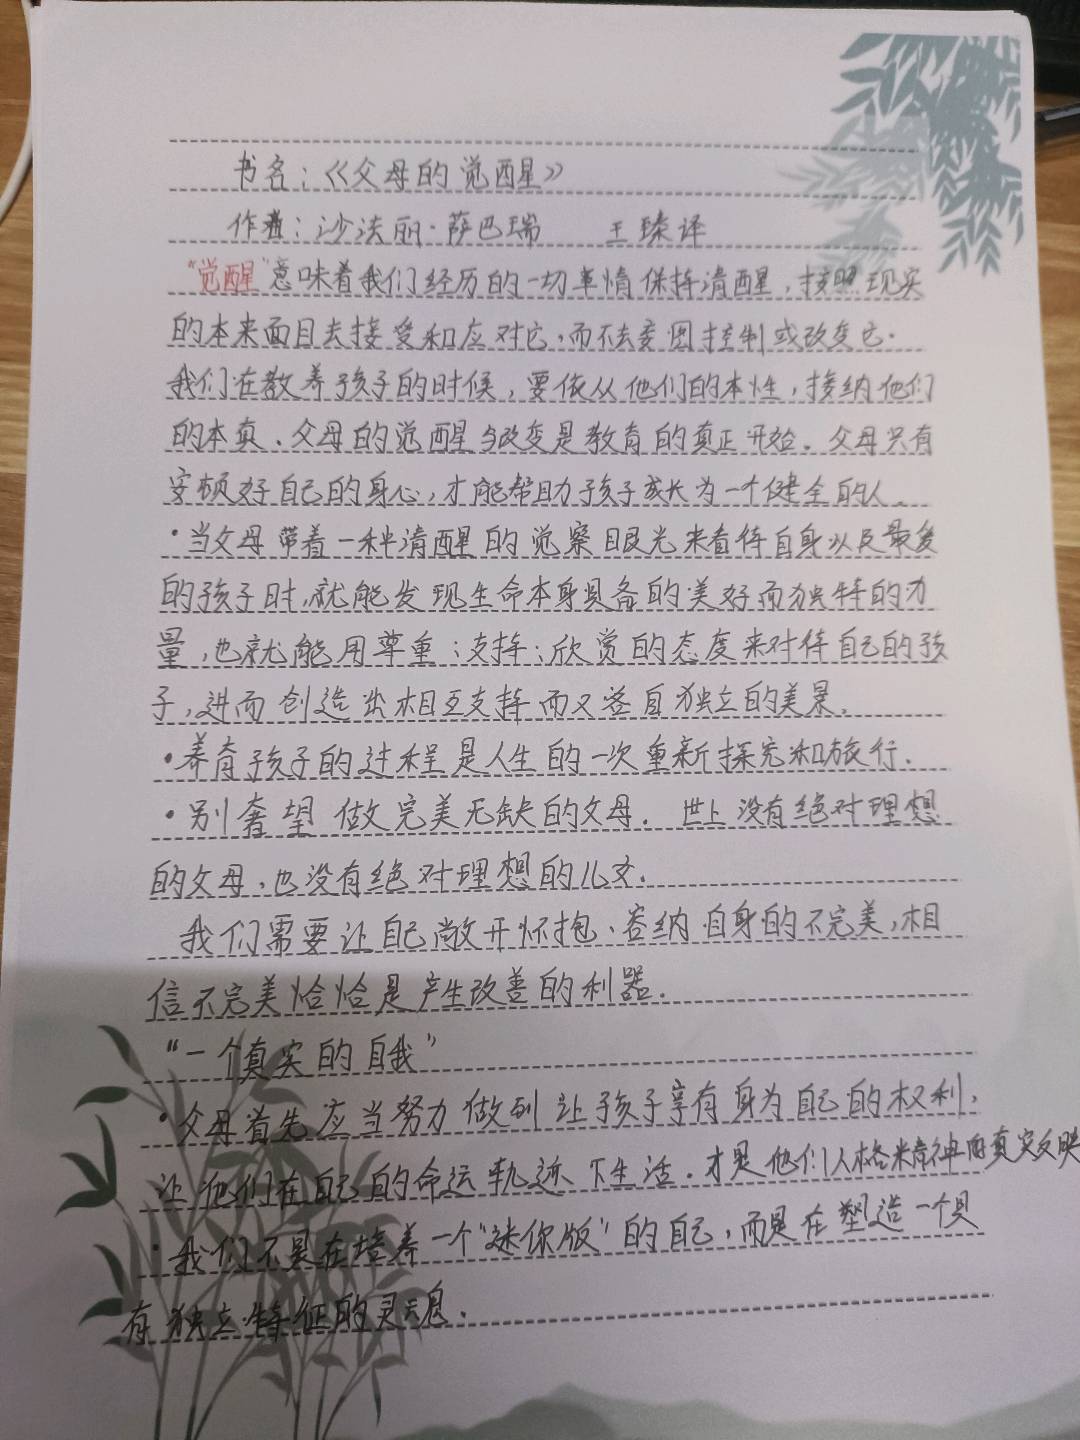 书名：《父母的觉醒》
作者：沙法丽·萨巴瑞 王臻译
“觉醒”意味着我们经历的一切事情保持清醒，按照现实
的本来面目去接受和应对它，而不去妄图控制或改变它.
我们在教养孩子的时候，要依从他们的本性，接纳他们
的本真、父母的觉醒与改变是教育的真正开始。父母只有
安顿好自己的身心，才能帮助孩子成长为一个健全的人。
·当父母带着一种清醒的觉察眼光来看待自身以及最爱
的孩子时，就能发现生命本身具备的美好而独特的力
量，也就能用尊重；支持；欣赏的态度来对待自己的孩
子，进而创造出相互支持而又各自独立的美景。
·养育孩子的过程是人生的一次重新探究和旅行.
·别奢望做完美无缺的父母. 世上没有绝对理想
的父母，也没有绝对理想的儿女.
我们需要让自己敞开怀抱、容纳自身的不完美，相
信不完美恰恰是产生改善的利器.
“一个真实的自我”
·父母首先应当努力做到让孩子享有身为自己的权利，
让他们在自己的命运轨迹下生活.才是他们人格精神的真实反映
·我们不是在培养一个“迷你版”的自己，而是在塑造一个具
有独立特征的灵魂.